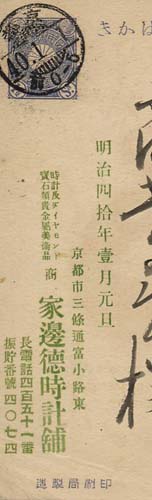 きかは
明治四拾年壹月元旦
京都市三條通富小路東
時計及ダイヤモンド
寶石類貴金屬美術品
商
家邊德時計舖
長電話四百五十一番
振貯番號四〇七四
印刷局製造